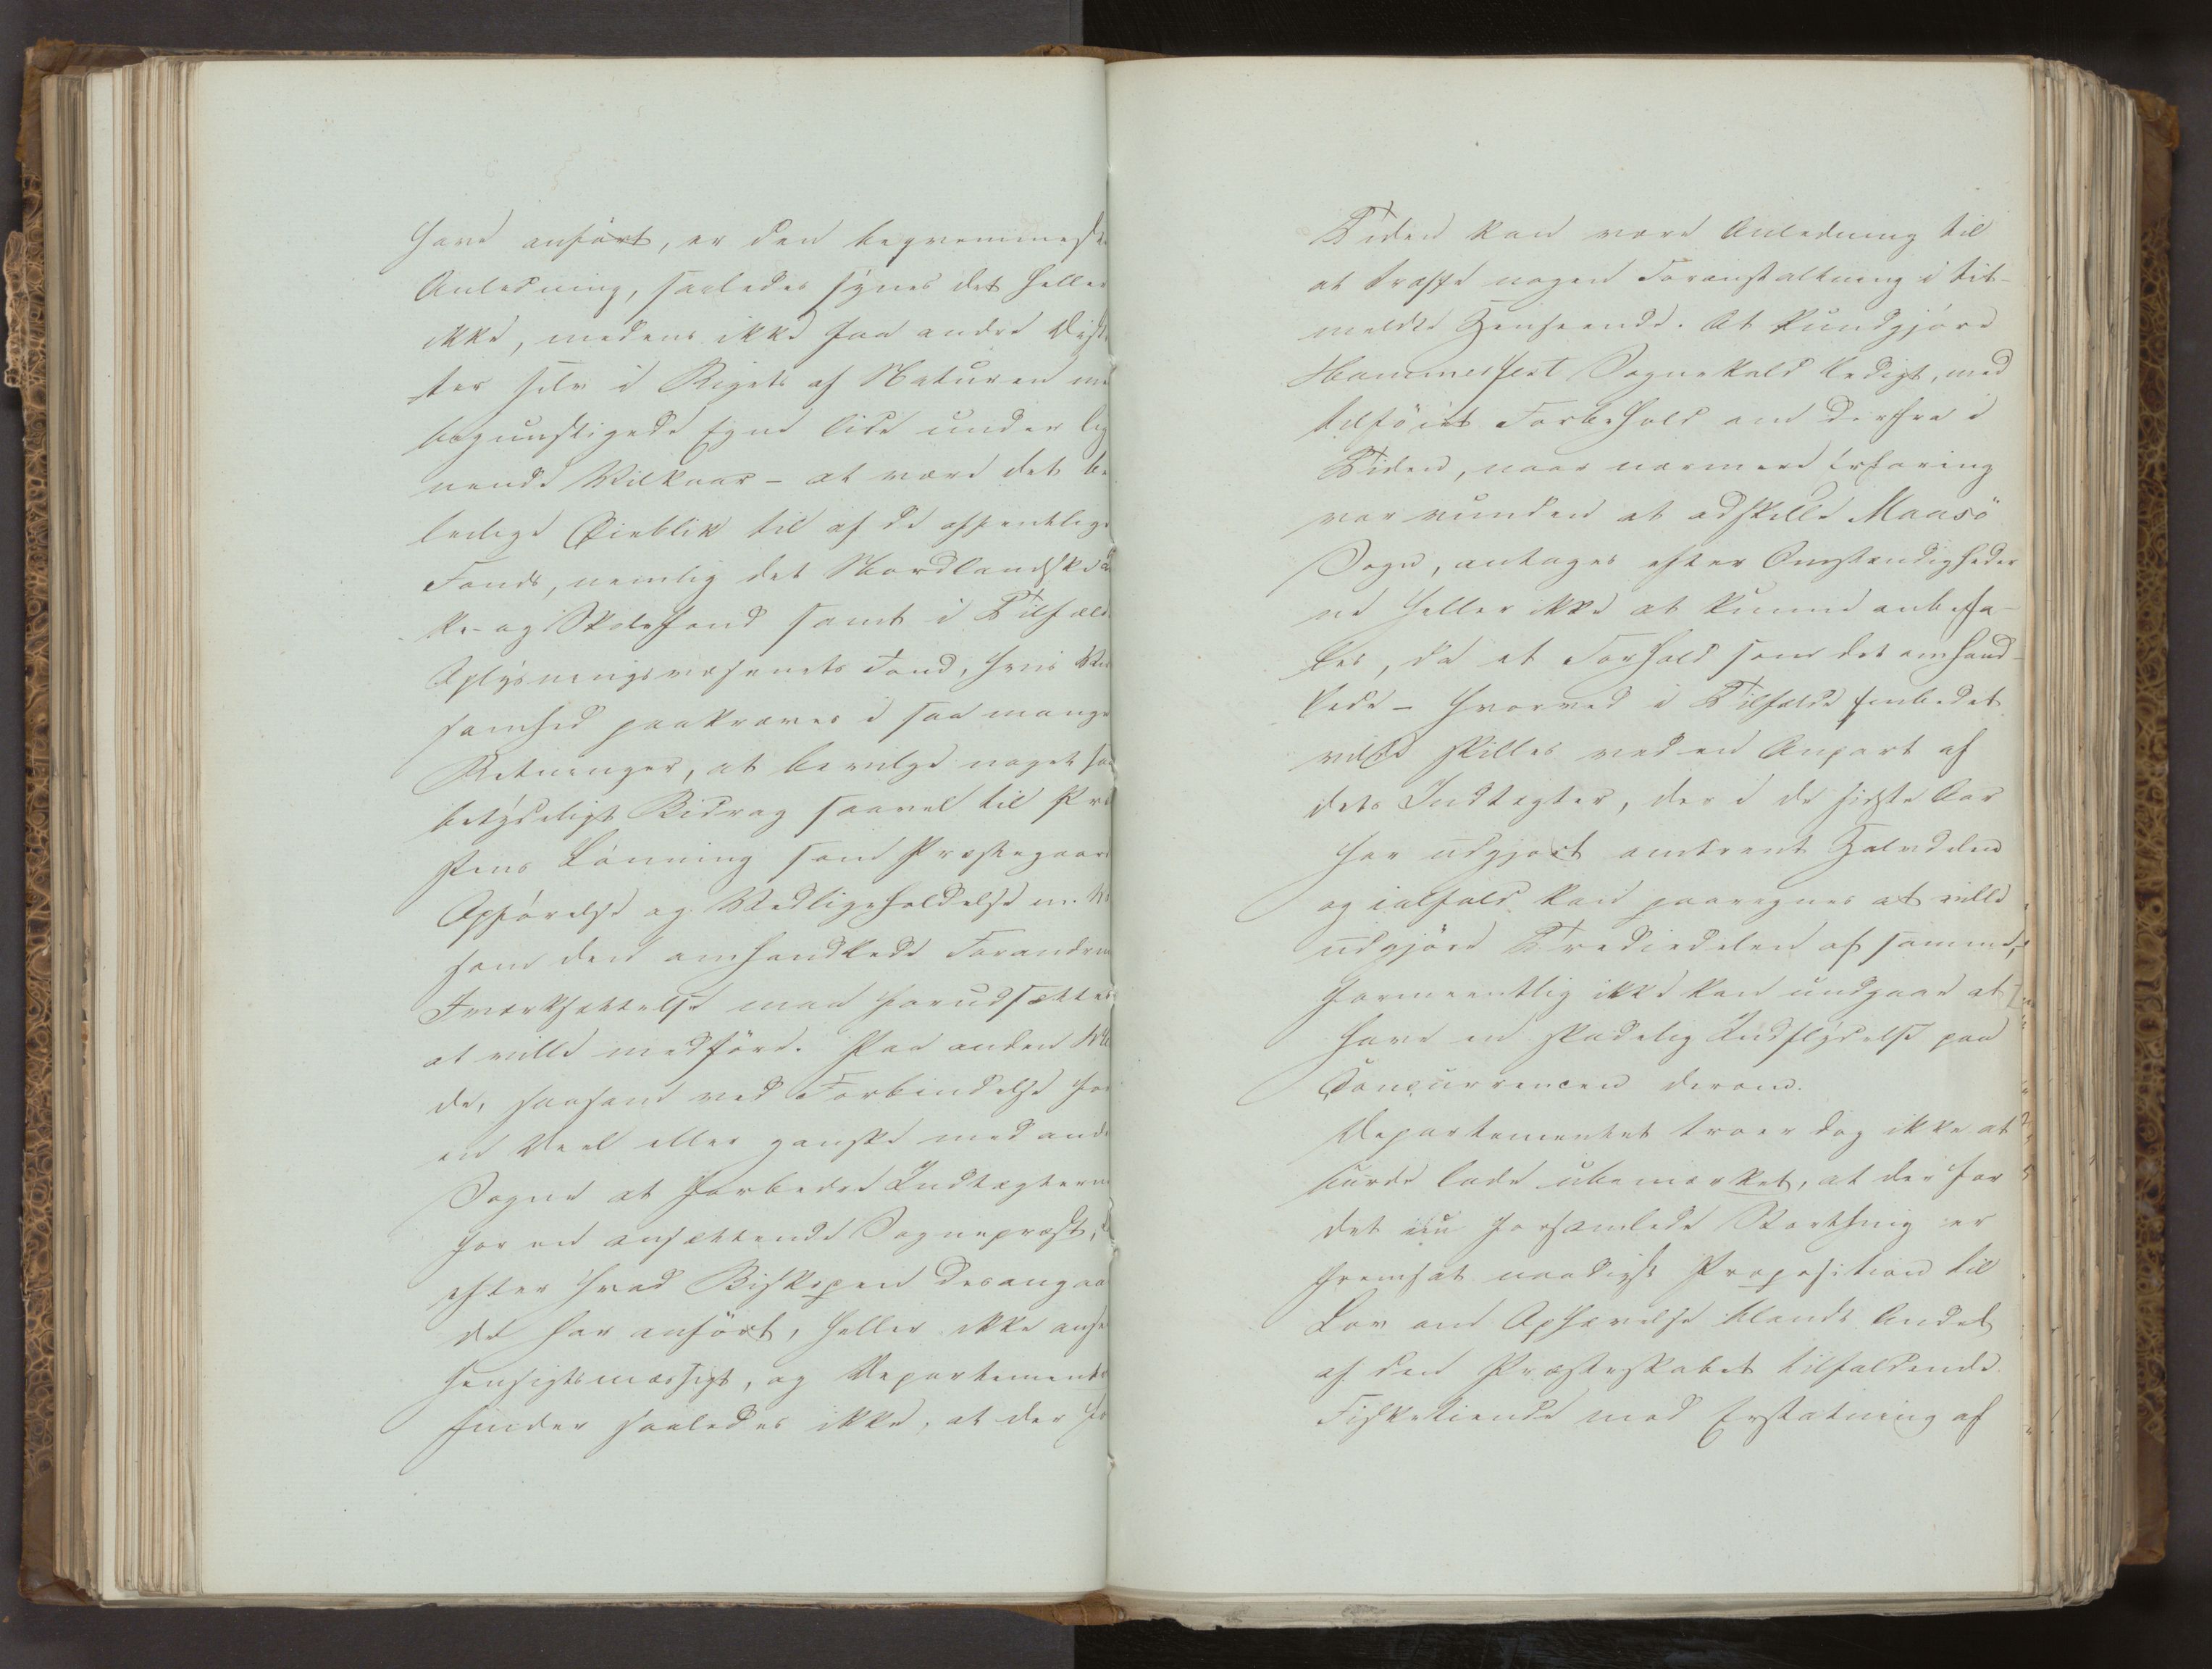 have anført, er den beqvemmeste
Anledning, saaledes synes det heller
ikke, medens ikke faa andre Distr
ter selv i Rigets af Naturen me
begunstigede Egne lide under lig
nende Vilkaar – at være det be
leilige Øieblik til af de offentlige
Fonds, nemlig det Nordlandske K
ke- og Skolefond samt i Tilfælde
Oplysningsvæsenets Fond, hvis Vir
somhed paakræves i saa mange
Retninger, at bevilge noget saa
betydeligt Bidrag saavel til Præ
stens Lønning som Præstegaard
Opførelse og Vedligeholdelse m. V.
som den omhandlede Forandrin
Iværksættelse maa forudsættes
at ville medføre. Paa anden Maa
de, saasom ved Forbindelse for
en Deel eller ganske med andre
Sogne at forbedre Indtægterne
for en ansættende Sognepræst,
efter hvad Biskopen desangaaen
de har anført, heller ikke anse
hensigtsmæssigt, og Departementet
finder saaledes ikke, at der for
Tiden kan være Anledning til
at træffe nogen Foranstaltning i bit-
meldte Henseende. At kundgjøre
Hammerfest Sognekald ledigt, med
tilføiet Forbehold om derfra i
Tiden, naar nærmere Erfaring
var vunden at adskille Maasö
Sogn, antages efter Omstændigheder
ne heller ikke at kunne anbefa-
les, da et Forhold som det omhand-
lede – hvorved i Tilfælde Embedet
vilde skilles ved en Anpart af
dets Indtægter, der i de sidste Aar
har udgjort omtrent Halvdelen
og ialfald kan paaregnes at ville
udgjöre Trediedelen af samme,
formeentlig ikke kan undgaae at
have en skadelig Indflydelse paa
Concurrencen derom.
Departementet troer dog ikke at
burde lade ubemærket, at der for
det nu forsamlede Storthing er
fremsat naadigst Proposition til
Lov om Ophævelse blandt Andet
af den Præsteskabet tilfaldende
Fisketiende mod Erstatning af